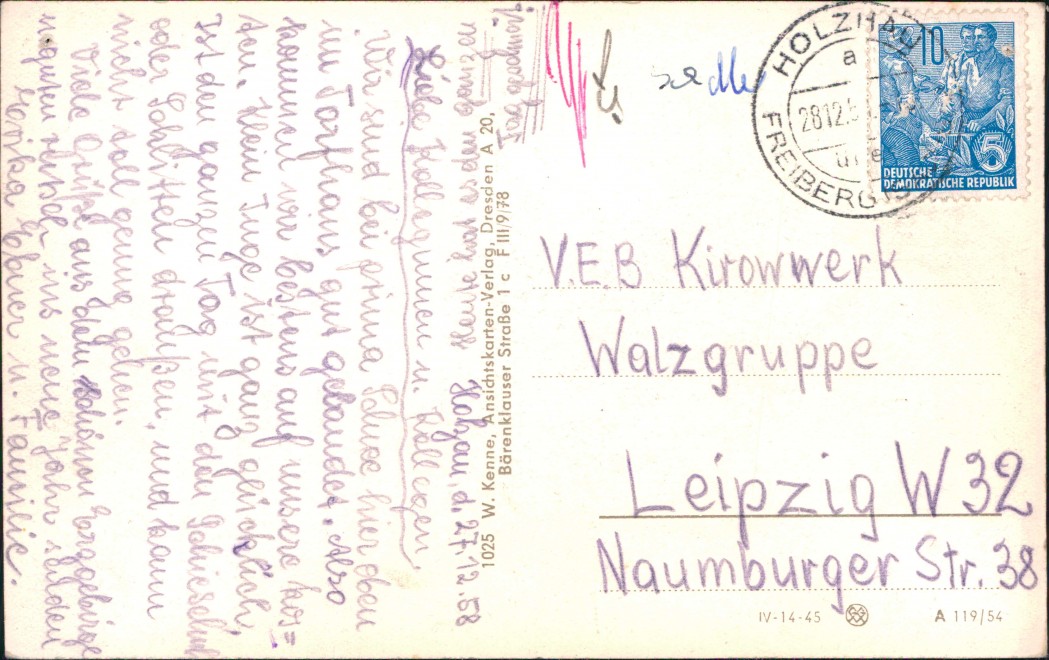 Holzgau, d. 27.12.58
Heute hat es den ganzen
Tag geschneit.
Liebe Kolleginnen u. Kollegen
Wir sind bei prima Schnee hier oben
im Torfhaus gut gelandet. Also
kommen wir bestens auf unsere Kos=
ten. Klein Inge ist ganz glücklich,
Ist den ganzen Tag mit den
oder Schlitten draußen, und kann
nicht toll genug gehen.
Viele Grüße aus dem schönen Erzgebirge
u. guten Rutsch ins neue Jahr senden
u. Familie.
1025 W. Kenne, Ansichtskarten-Verlag, Dresden A 20,
Bärenklauser Straße 1 c F III/9/78
HOLZHAU
a
28.12.5
FREIBERG
10
5
DEUTSCHE
DEMOKRATISCHE REPUBLIK
V.E.B Kirowwerk
Walzgruppe
Leipzig W 32
Naumburger Str. 38
IV-14-45
A 119/54